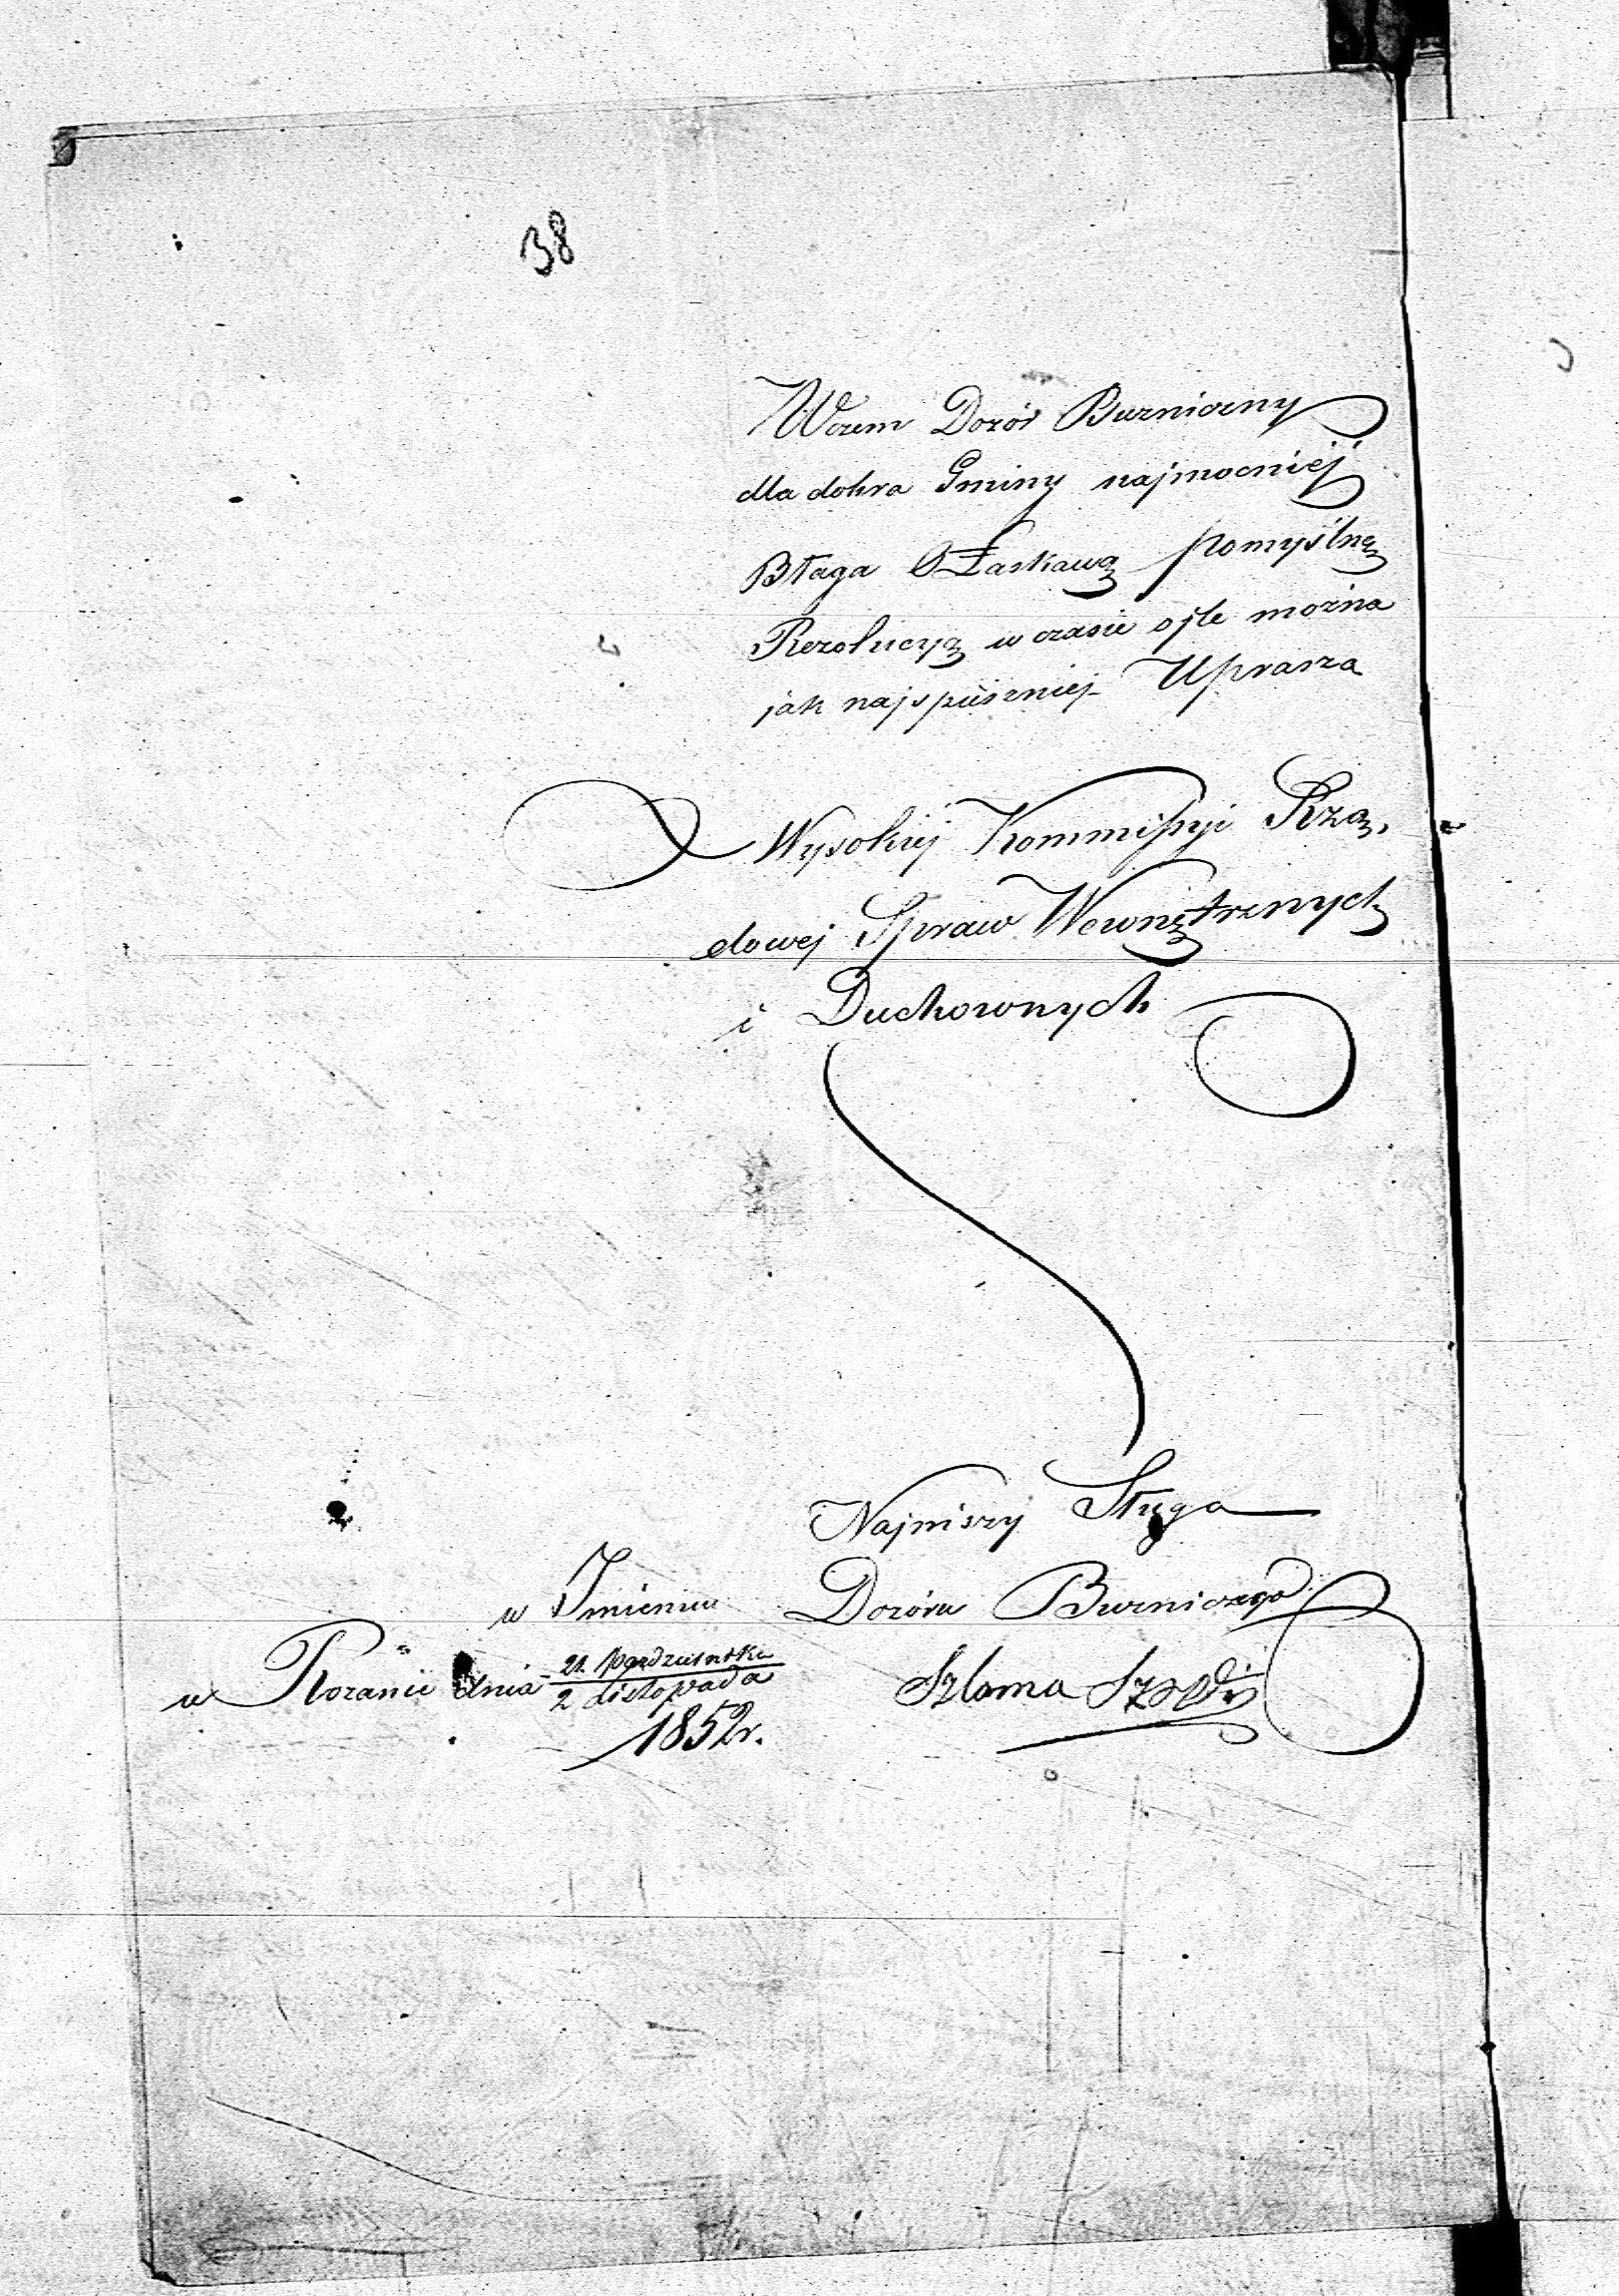 38
Wczem Dozór Buzniczny
dla dobra Gminy najmocniej
Błaga O Łaskawą pomyślną
Rezolucyą w czasie ojle można
jak najspieszniej Uprasza
Wysokiej Kommissyi Rzą,
dowej Spraw Wewnętrznych
i Duchownych
Najniszy Sługa
w Imieniu Dozóru Buzniczego
w Rozanie dnia 21. Pazdziernika
2 Listopada
1852r.
Szloma